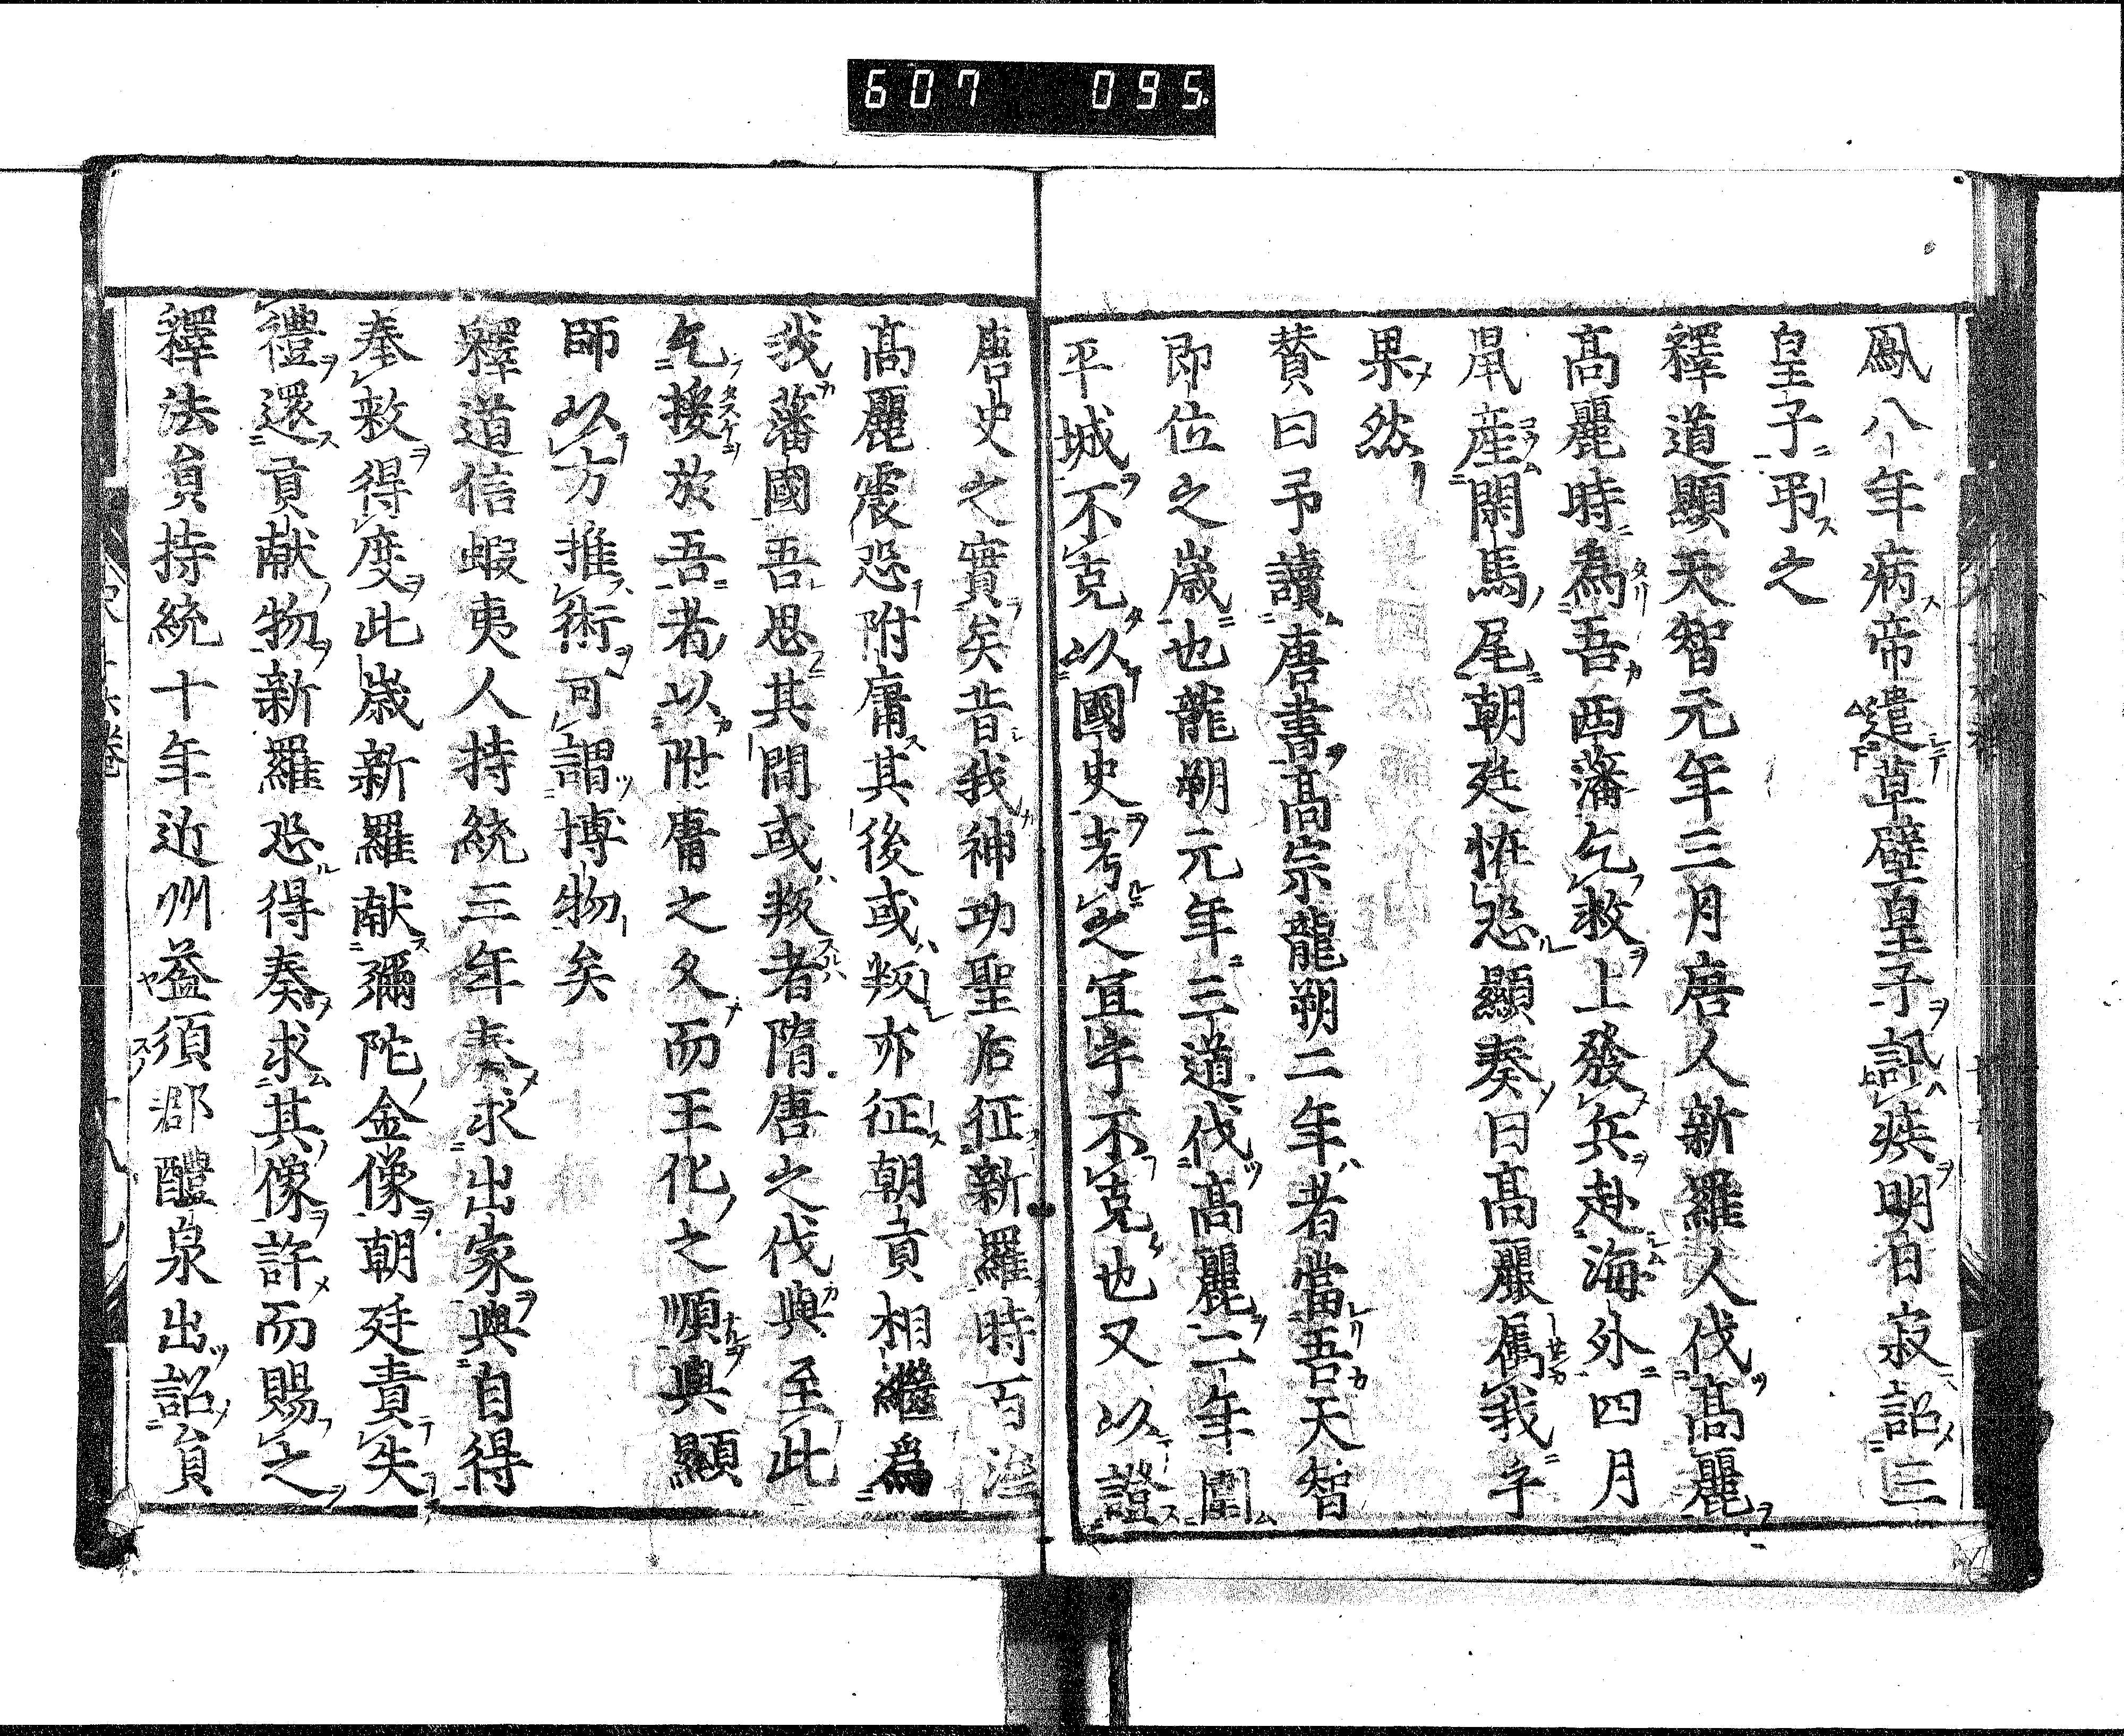 607 095
鳳八年病帝遣草壁皇子訊疾明日寂詔三
皇子弔之
釋道顯天智元年三月唐人新羅人伐高麗
高麗時爲吾西藩乞救上發兵赴海外四月
鼠産閑馬尾朝廷恠恐顯奏曰高麗屬我乎
果然
賛曰予讀唐書高宗龍朔二年者當吾天智
即位之歳也龍朔元年三道伐高麗二年圍
平城不克以國史考之冝乎不克也又以證
唐史之實矣昔我神功聖后征新羅時百濟
高麗震恐附庸其後或叛亦征朝貢相繼爲
我藩國吾思其間或叛者隋唐之伐與至此
乞援於吾者以附庸之久而王化之順與顯
師以方推術可謂博物矣
釋道信蝦夷人持統三年奏求出家與自得
奉敕得度此歳新羅献彌陀金像朝廷責失
禮還貢献物新羅恐得奏求其像許而賜之
釋法員持統十年近州益須郡醴泉出詔員